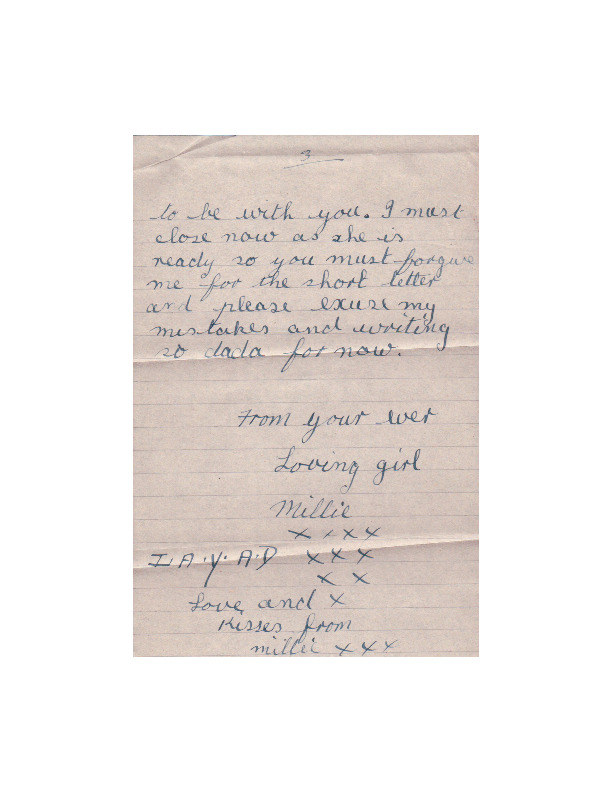 3
to be with you. I must
close now as she is
ready so you must forgive
me for the short letter
and please exuse my
mistakes and writing
so dada for now.
From your ever
Loving girl
Millie
x x x x
I. A. Y. A. D x x x
x x
Love and x
Kisses from
millie x x x